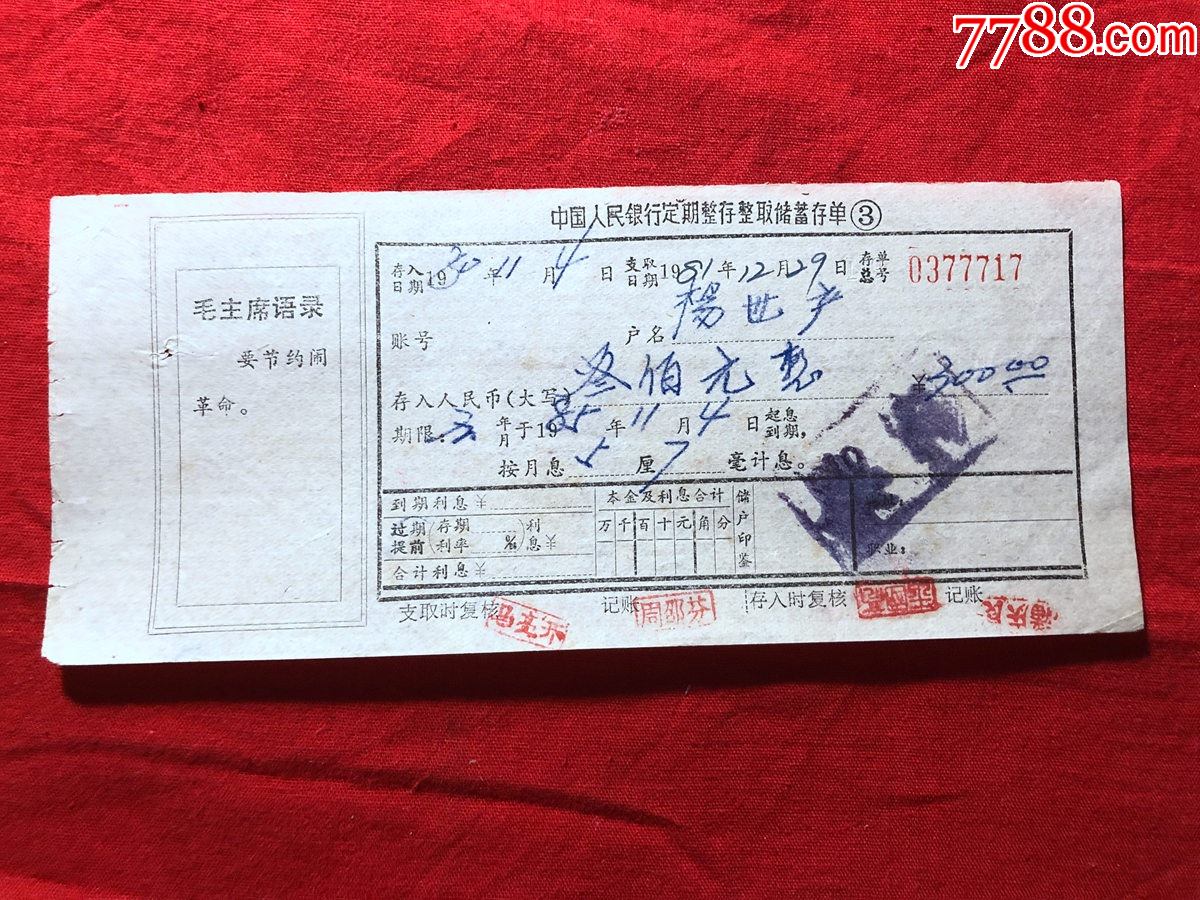 7788.com
中国人民银行定期整存整取储蓄存单③
毛主席语录
要节约闹
革命。
存入日期19 年11月4日 支取日期1981年12月29日 存单总号 0377717
账号 户名 杨世
存入人民币(大写) 叁佰元整 ¥300.00
期限: 年月于19 年11月4日起息到期,
按月息5厘7毫计息。
到期利息¥ 本金及利息合计 储户印鉴
过期提前(存期利率 %)利息¥ 万千百十元角分
合计利息¥ 职业:
支取时复核 记账 周邵芬 存入时复核 记账